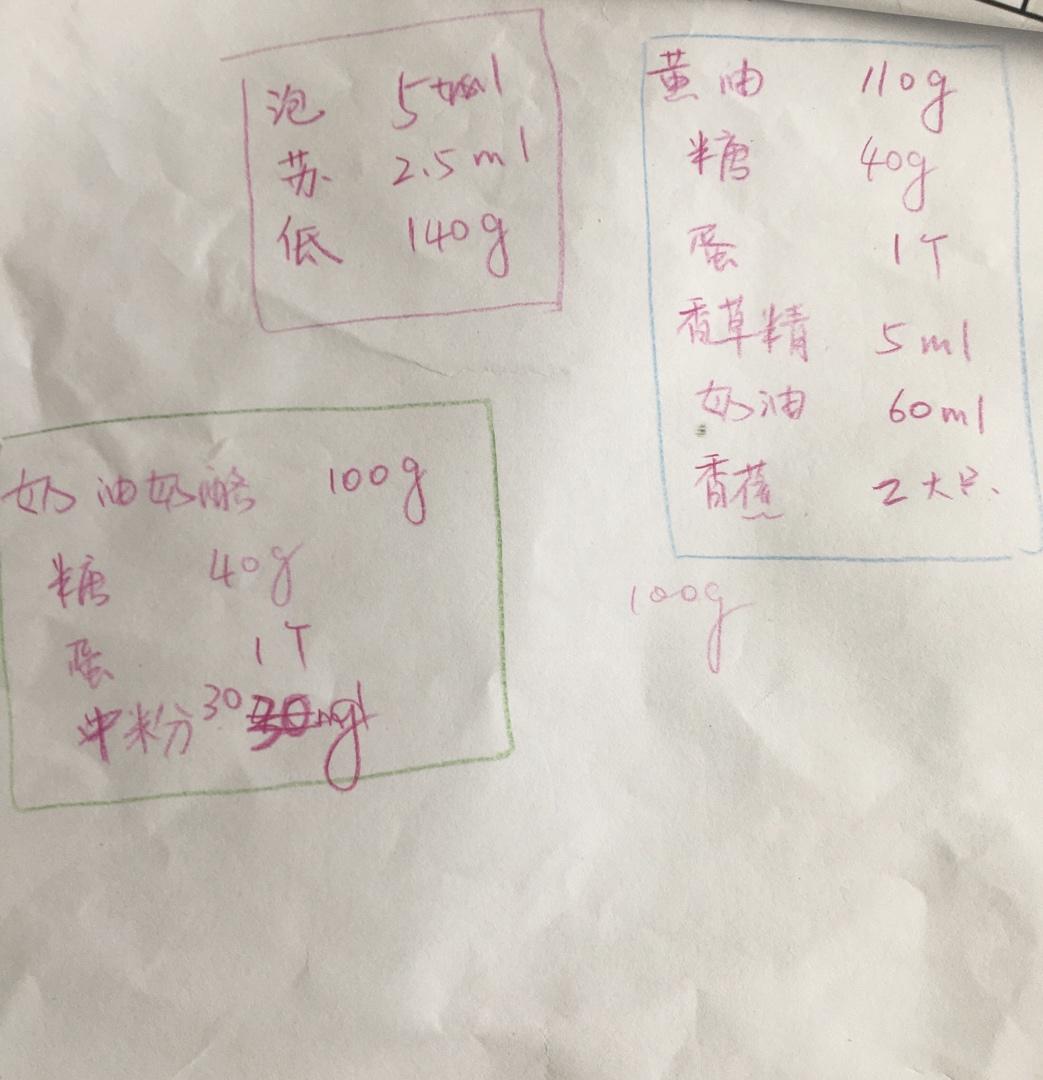 泡 5ml
苏 2.5ml
低 140g
黄油 110g
糖 40g
蛋 1T
香草精 5ml
奶油 60ml
香蕉 2大只.
奶油奶酪 100g
糖 40g
蛋 1T
中粉 30g
100g